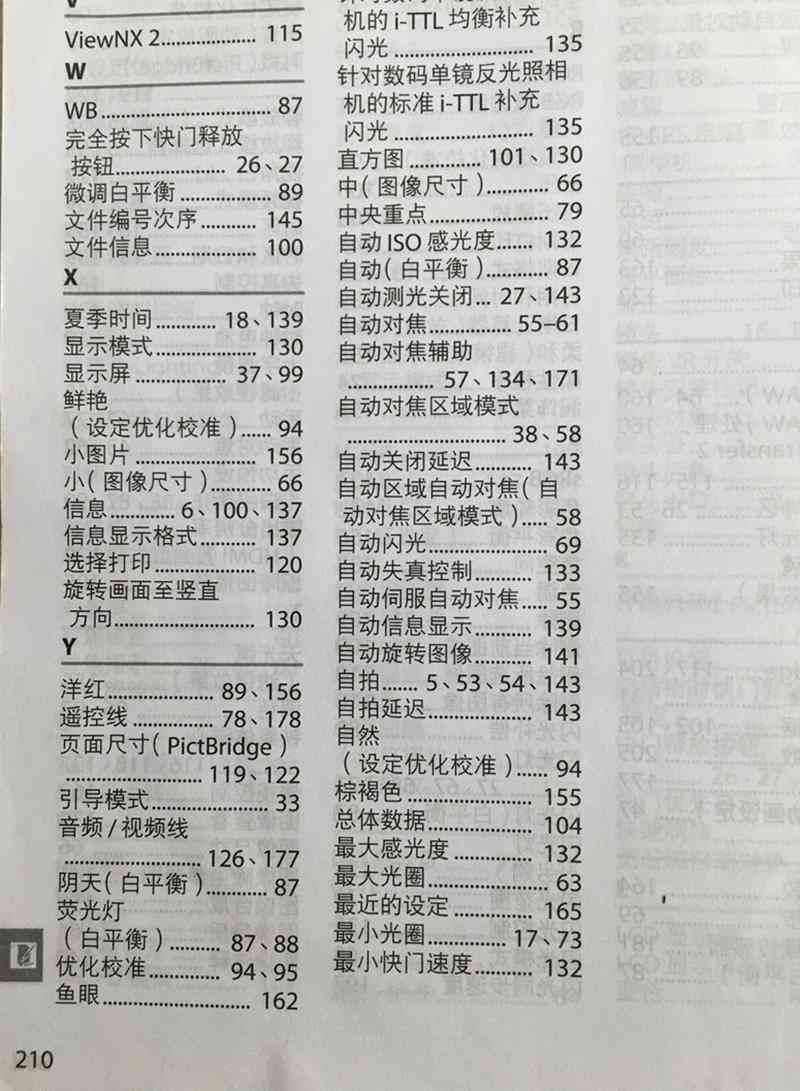 V
ViewNX 2 .................. 115
W
WB .................. 87
完全按下快门释放
按钮 .................. 26、27
微调白平衡 .................. 89
文件编号次序 .......... 145
文件信息 .................. 100
X
夏季时间 ............ 18、139
显示模式 .................. 130
显示屏 ................ 37、99
鲜艳
（设定优化校准）...... 94
小图片 .................. 156
小（图像尺寸）............ 66
信息 ............ 6、100、137
信息显示格式 .......... 137
选择打印 .................. 120
旋转画面至竖直
方向 .................. 130
Y
洋红 .................. 89、156
遥控线 ............... 78、178
页面尺寸（PictBridge）
.................. 119、122
引导模式 .................. 33
音频 / 视频线
.................. 126、177
阴天（白平衡）............ 87
荧光灯
（白平衡）.......... 87、88
优化校准 ............ 94、95
鱼眼 .................. 162
机的 i-TTL 均衡补充
闪光 .................. 135
针对数码单镜反光照相
机的标准 i-TTL 补充
闪光 .................. 135
直方图 ............ 101、130
中（图像尺寸）............ 66
中央重点 .................. 79
自动 ISO 感光度 ....... 132
自动（白平衡）............ 87
自动测光关闭 ... 27、143
自动对焦 ............... 55–61
自动对焦辅助
............... 57、134、171
自动对焦区域模式
.................. 38、58
自动关闭延迟 .......... 143
自动区域自动对焦（自
动对焦区域模式）..... 58
自动闪光 .................. 69
自动失真控制 .......... 133
自动伺服自动对焦 ..... 55
自动信息显示 .......... 139
自动旋转图像 .......... 141
自拍 ....... 5、53、54、143
自拍延迟 .................. 143
自然
（设定优化校准）...... 94
棕褐色 .................. 155
总体数据 .................. 104
最大感光度 ............. 132
最大光圈 .................. 63
最近的设定 ............. 165
最小光圈 ............ 17、73
最小快门速度 .......... 132
210